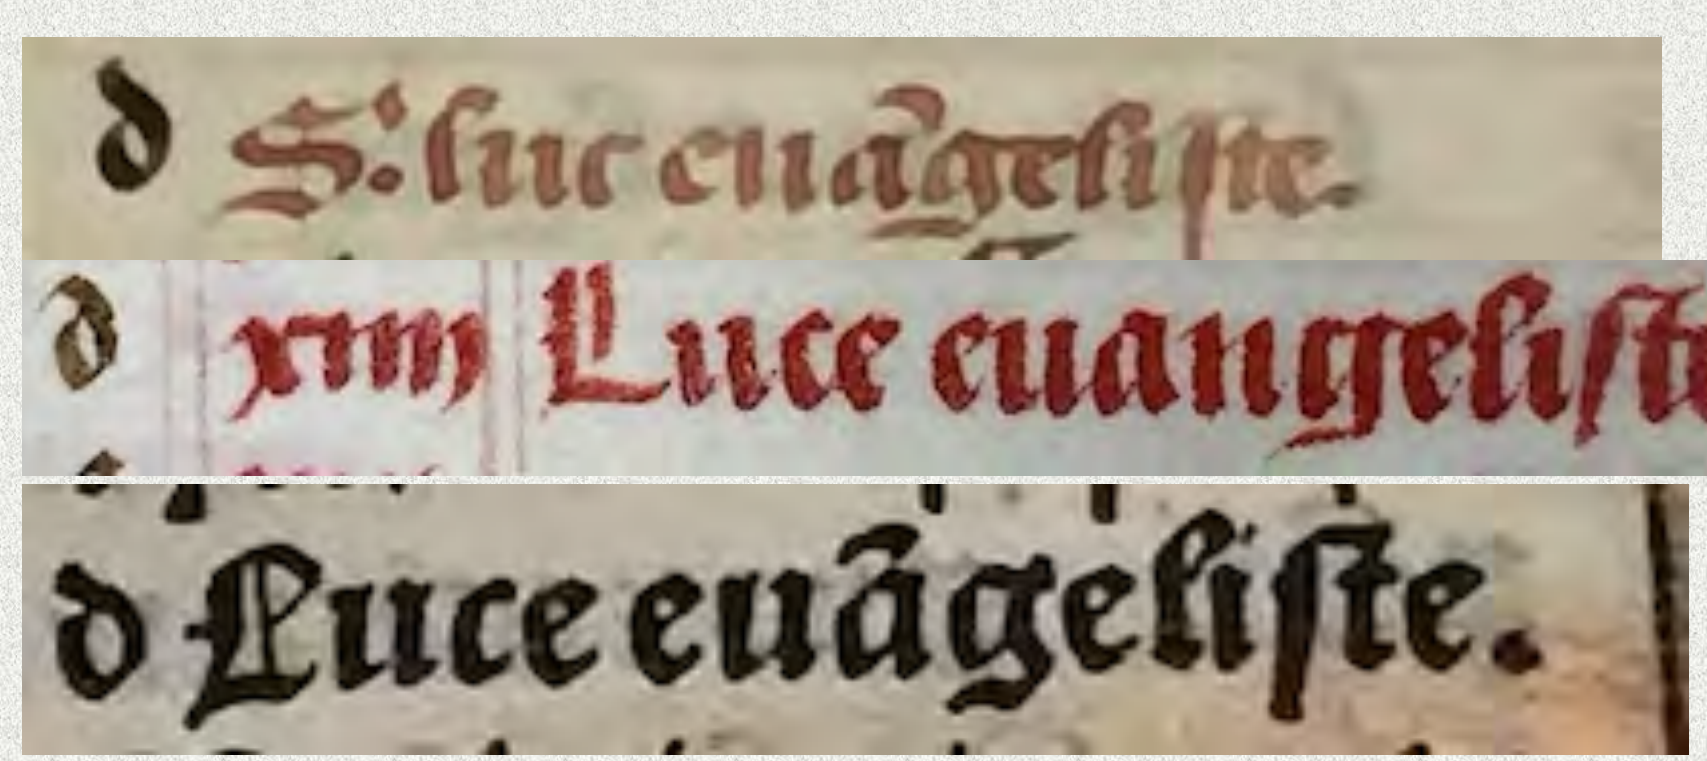 d S. luc euãgeliſte.
d xiiij Luce euangeliſt
d Luce euãgeliſte.